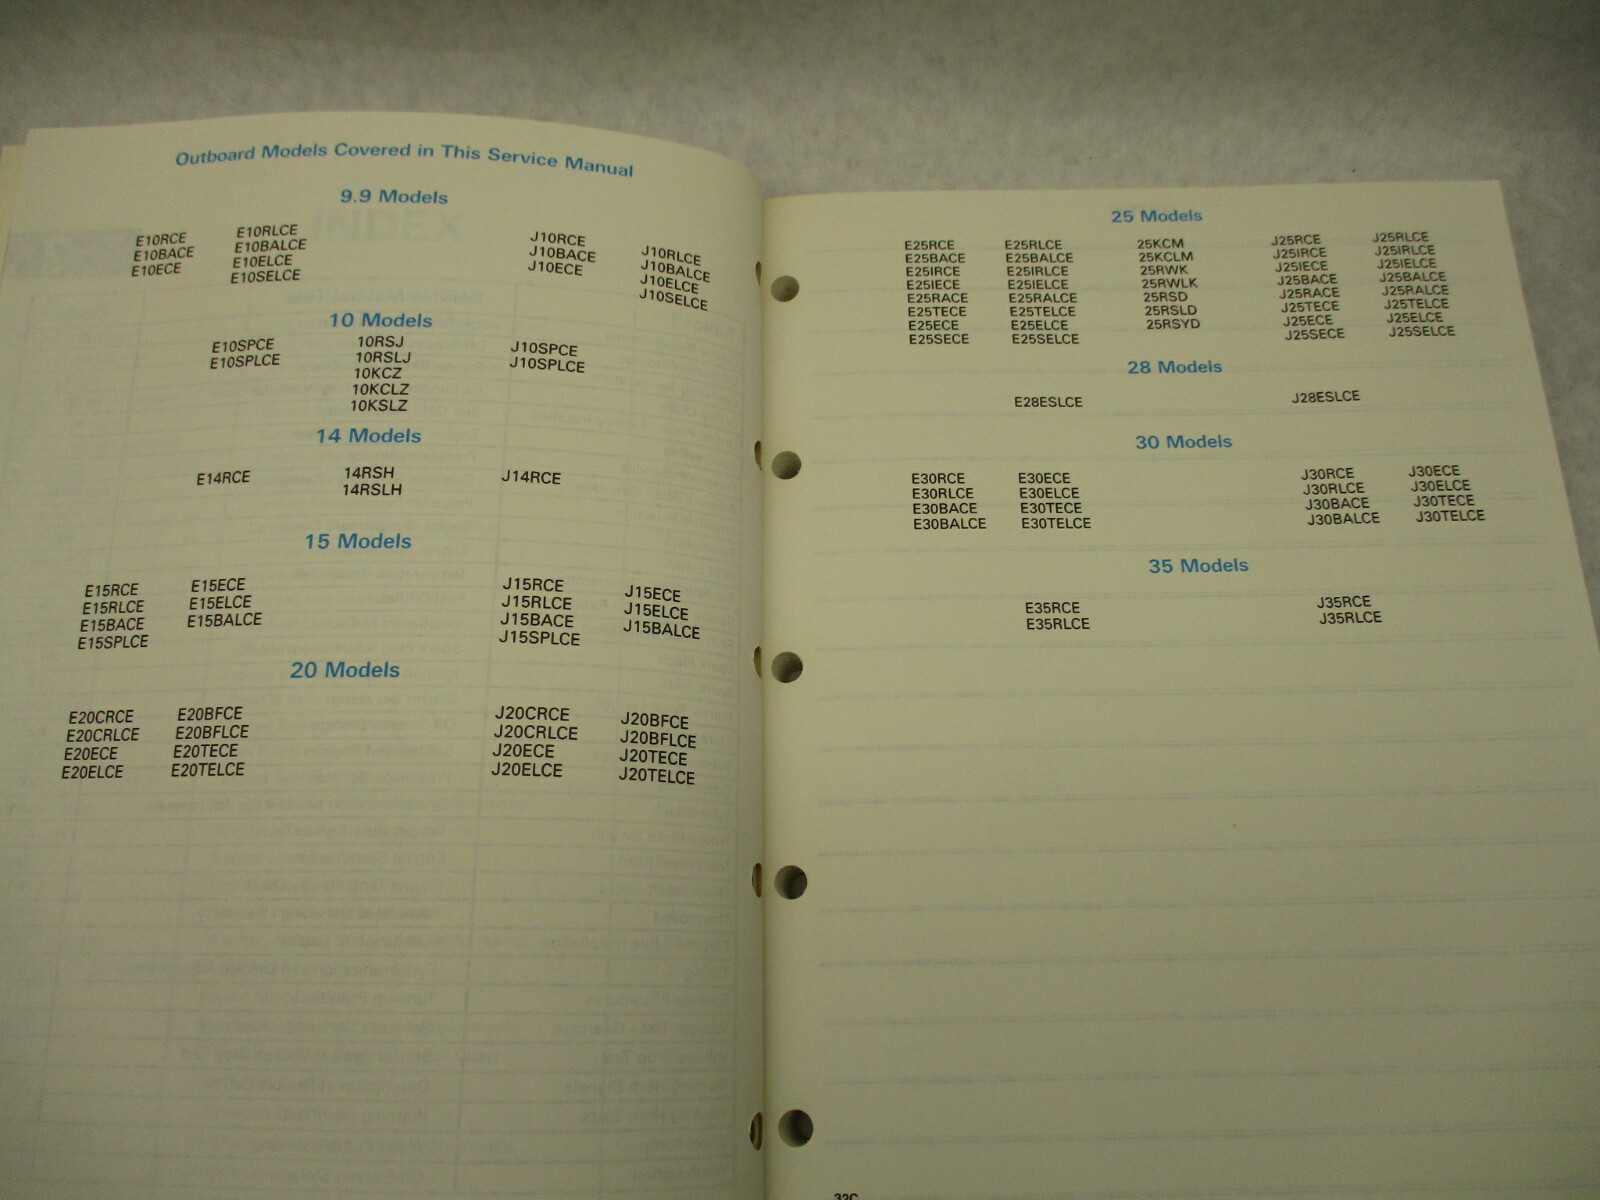 Outboard Models Covered in This Service Manual
9.9 Models
E10RCE E10RLCE J10RCE J10RLCE
E10BACE E10BALCE J10BACE J10BALCE
E10ECE E10ELCE J10ECE J10ELCE
E10SELCE J10SELCE
10 Models
E10SPCE 10RSJ J10SPCE
E10SPLCE 10RSLJ J10SPLCE
10KCZ
10KCLZ
10KSLZ
14 Models
E14RCE 14RSH J14RCE
14RSLH
15 Models
E15RCE E15ECE J15RCE J15ECE
E15RLCE E15ELCE J15RLCE J15ELCE
E15BACE E15BALCE J15BACE J15BALCE
E15SPLCE J15SPLCE
20 Models
E20CRCE E20BFCE J20CRCE J20BFCE
E20CRLCE E20BFLCE J20CRLCE J20BFLCE
E20ECE E20TECE J20ECE J20TECE
E20ELCE E20TELCE J20ELCE J20TELCE
25 Models
E25RCE E25RLCE 25KCM J25RCE J25RLCE
E25BACE E25BALCE 25KCLM J25IRCE J25IRLCE
E25IRCE E25IRLCE 25RWK J25IECE J25IELCE
E25IECE E25IELCE 25RWLK J25BACE J25BALCE
E25RACE E25RALCE 25RSD J25RACE J25RALCE
E25TECE E25TELCE 25RSLD J25TECE J25TELCE
E25ECE E25ELCE 25RSYD J25ECE J25ELCE
E25SECE E25SELCE J25SECE J25SELCE
28 Models
E28ESLCE J28ESLCE
30 Models
E30RCE E30ECE J30RCE J30ECE
E30RLCE E30ELCE J30RLCE J30ELCE
E30BACE E30TECE J30BACE J30TECE
E30BALCE E30TELCE J30BALCE J30TELCE
35 Models
E35RCE J35RCE
E35RLCE J35RLCE